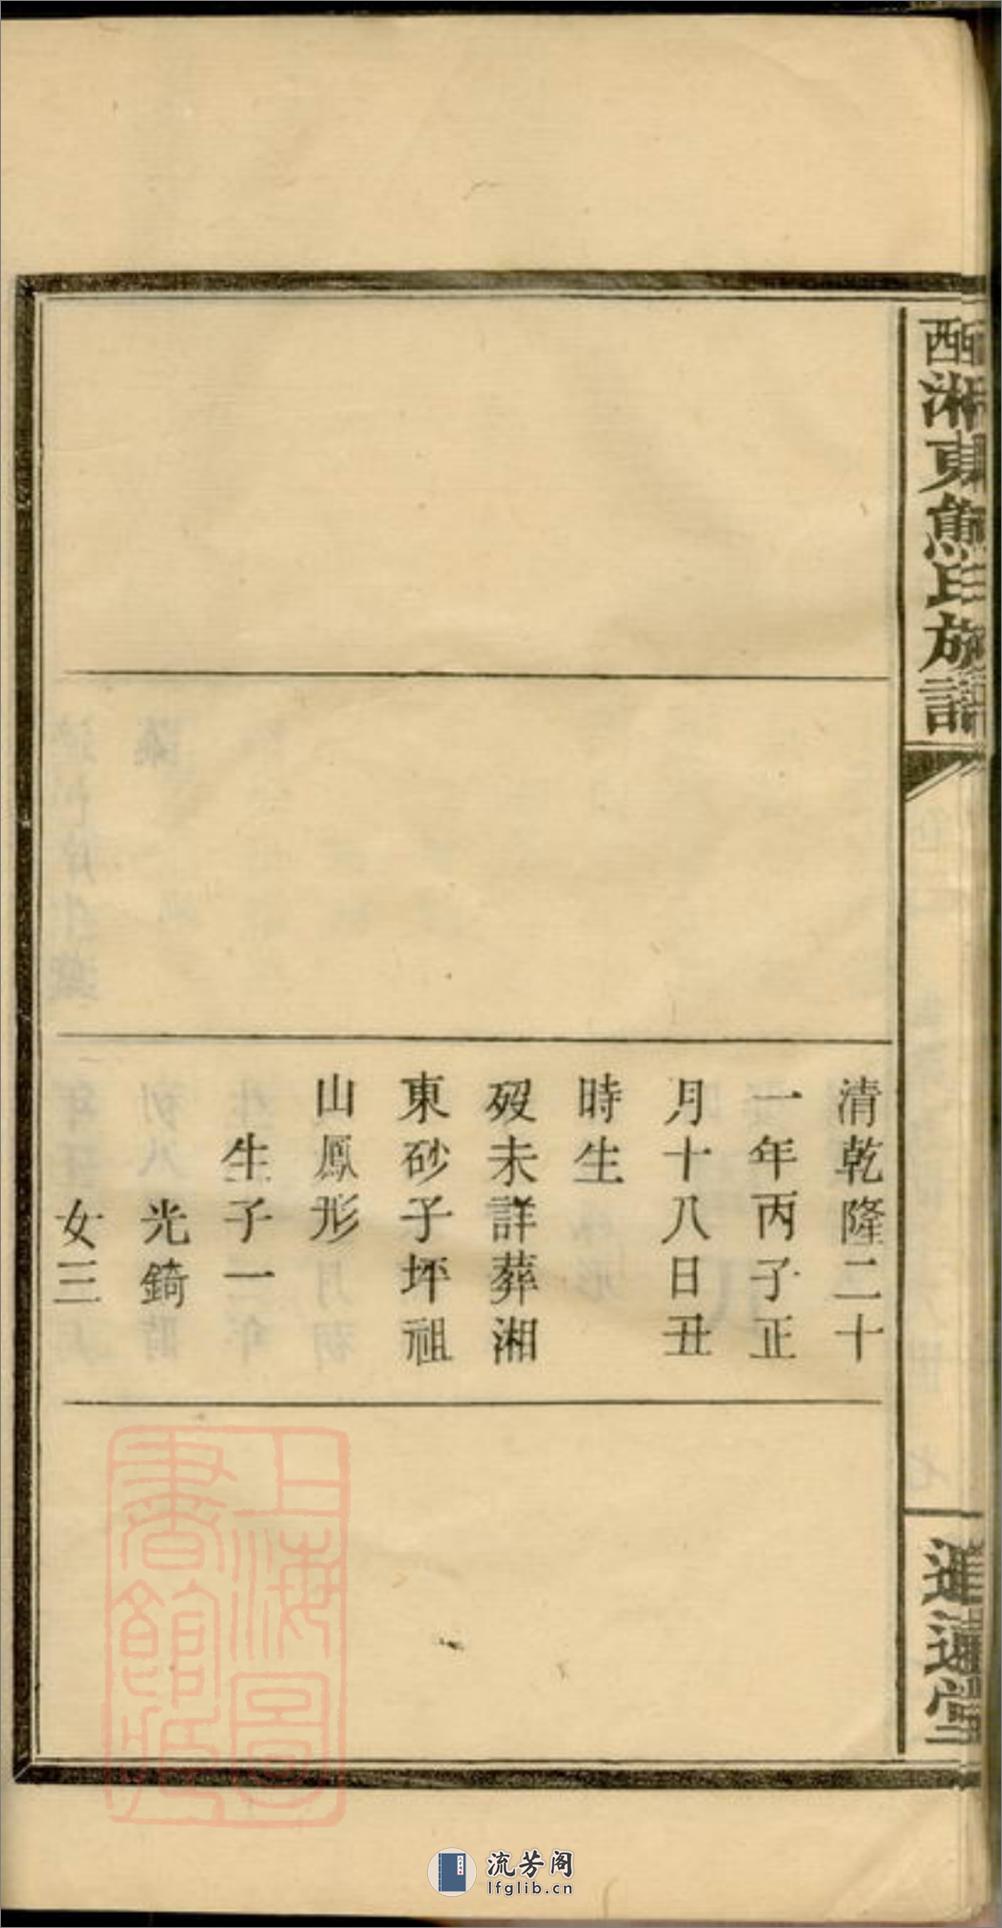 湘東熊氏族譜
清乾隆二十
一年丙子正
月十八日丑
時生
歿未詳葬湘
東砂子坪祖
山鳳形
生子一
光錡
女三
上海圖
書館藏
流芳阁
lfglib.cn